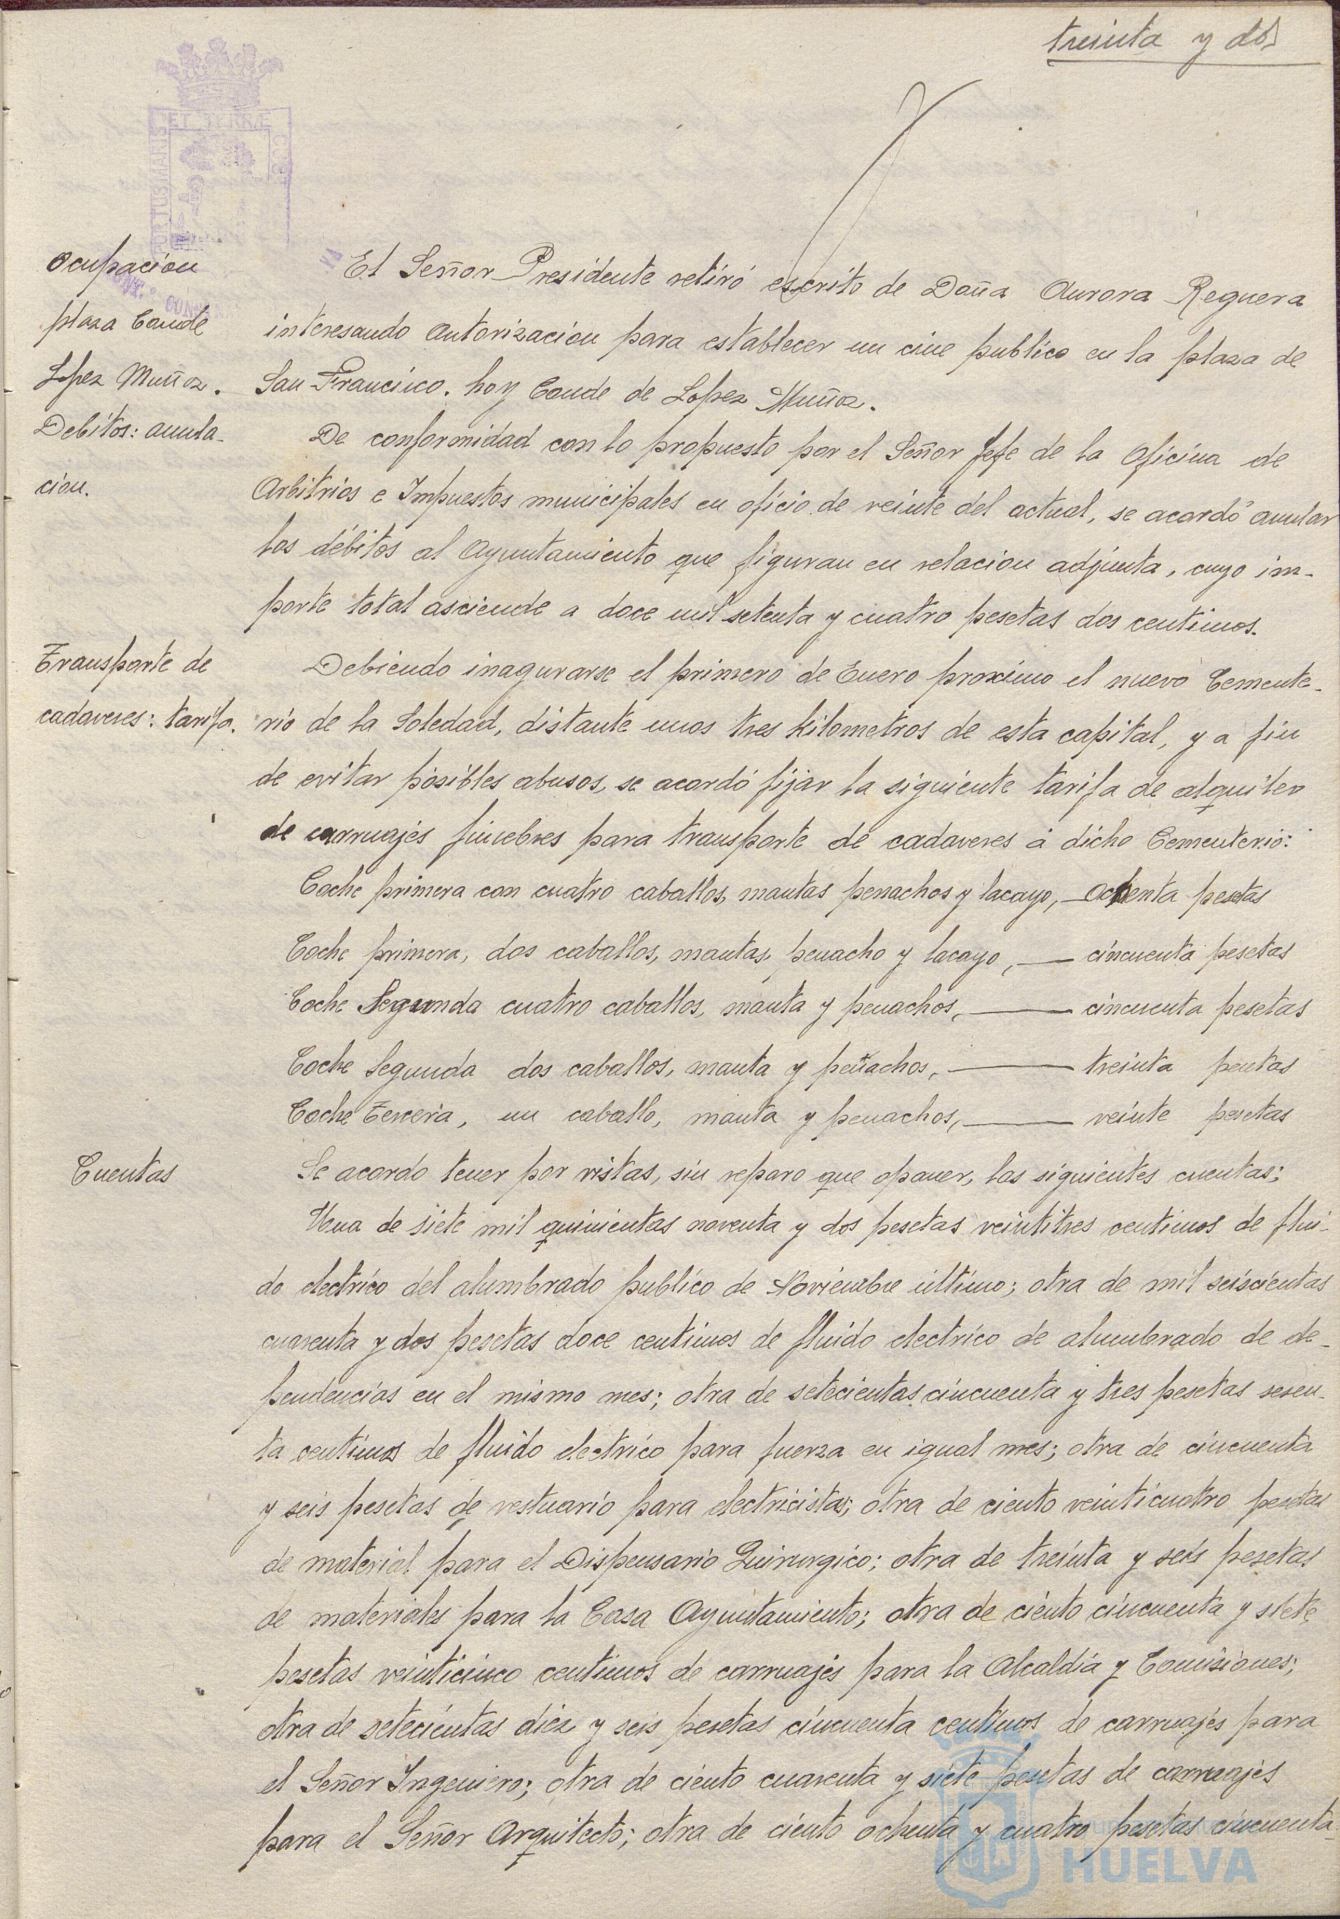 treinta y dos
ET TERRÆ
PORTUS MARIS
Ocupacion
plaza Conde
Lopez Muñoz.
El Señor Presidente retiró escrito de Doña Aurora Reguera
interesando autorizacion para establecer un cine publico en la plaza de
San Francisco. hoy Conde de Lopez Muñoz.
Debitos: anula-
cion.
De conformidad con lo propuesto por el Señor Jefe de la Oficina de
Arbitrios e Impuestos municipales en oficio de veinte del actual, se acordó anular
los débitos al Ayuntamiento que figuran en relacion adjunta, cuyo im-
porte total asciende a doce mil setenta y cuatro pesetas dos centimos.
Transporte de
cadaveres: tarifa.
Debiendo inagurarse el primero de Enero proximo el nuevo Cemente-
rio de la Soledad, distante unos tres kilometros de esta capital, y a fin
de evitar posibles abusos, se acordó fijar la siguiente tarifa de alquiler
de carruajes fúnebres para transporte de cadaveres á dicho Cementerio:
Coche primera con cuatro caballos, mantas penachos y lacayo, — ochenta pesetas
Coche primera, dos caballos, mantas, penacho y lacayo, — cincuenta pesetas
Coche Segunda cuatro caballos, manta y penachos, — cincuenta pesetas
Coche Segunda dos caballos, manta y penachos, — treinta pesetas
Coche Tercera, un caballo, manta y penachos, — veinte pesetas
Cuentas
Se acordo tener por vistas, sin reparo que oponer, las siguientes cuentas:
Una de siete mil quinientas noventa y dos pesetas veintitres centimos de flui-
do electrico del alumbrado publico de Noviembre último; otra de mil seiscientas
cuarenta y dos pesetas doce centimos de fluido electrico de alumbrado de de-
pendencias en el mismo mes; otra de setecientas cincuenta y tres pesetas sesen-
ta centimos de fluido electrico para fuerza en igual mes; otra de cincuenta
y seis pesetas de vestuario para electricistas; otra de ciento veinticuatro pesetas
de material para el Dispensario Quirurgico; otra de treinta y seis pesetas
de materiales para la Casa Ayuntamiento; otra de ciento cincuenta y siete
pesetas veinticinco centimos de carruajes para la Alcaldía y Comisiones;
otra de setecientas diez y seis pesetas cincuenta centimos de carruajes para
el Señor Ingeniero; otra de ciento cuarenta y siete pesetas de carruajes
para el Señor Arquitecto; otra de ciento ochenta y cuatro pesetas cincuenta
HUELVA